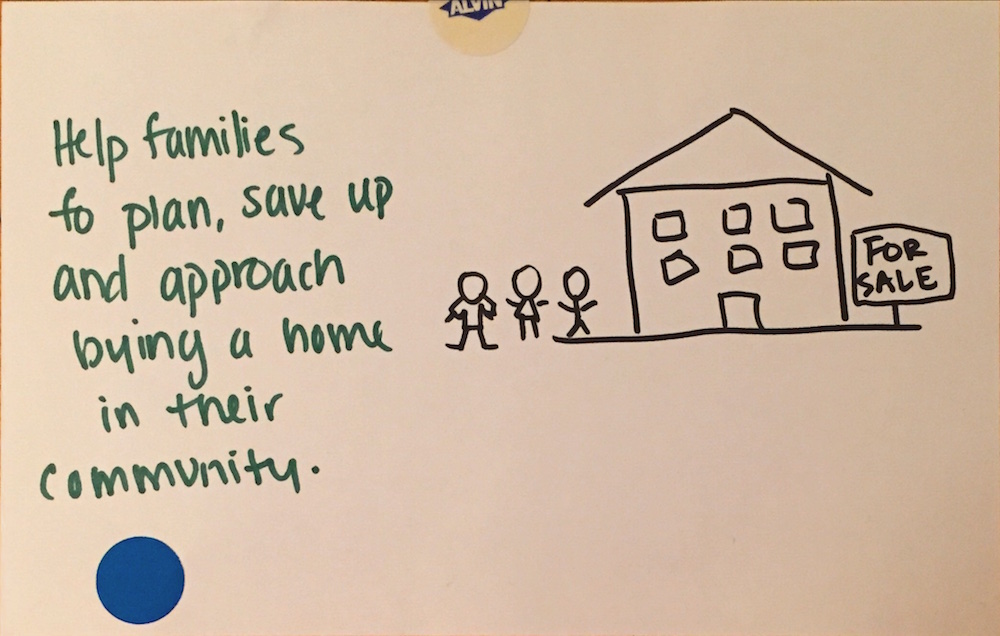 ALVIN
Help families
to plan, save up
and approach
bying a home
in their
community.
FOR
SALE